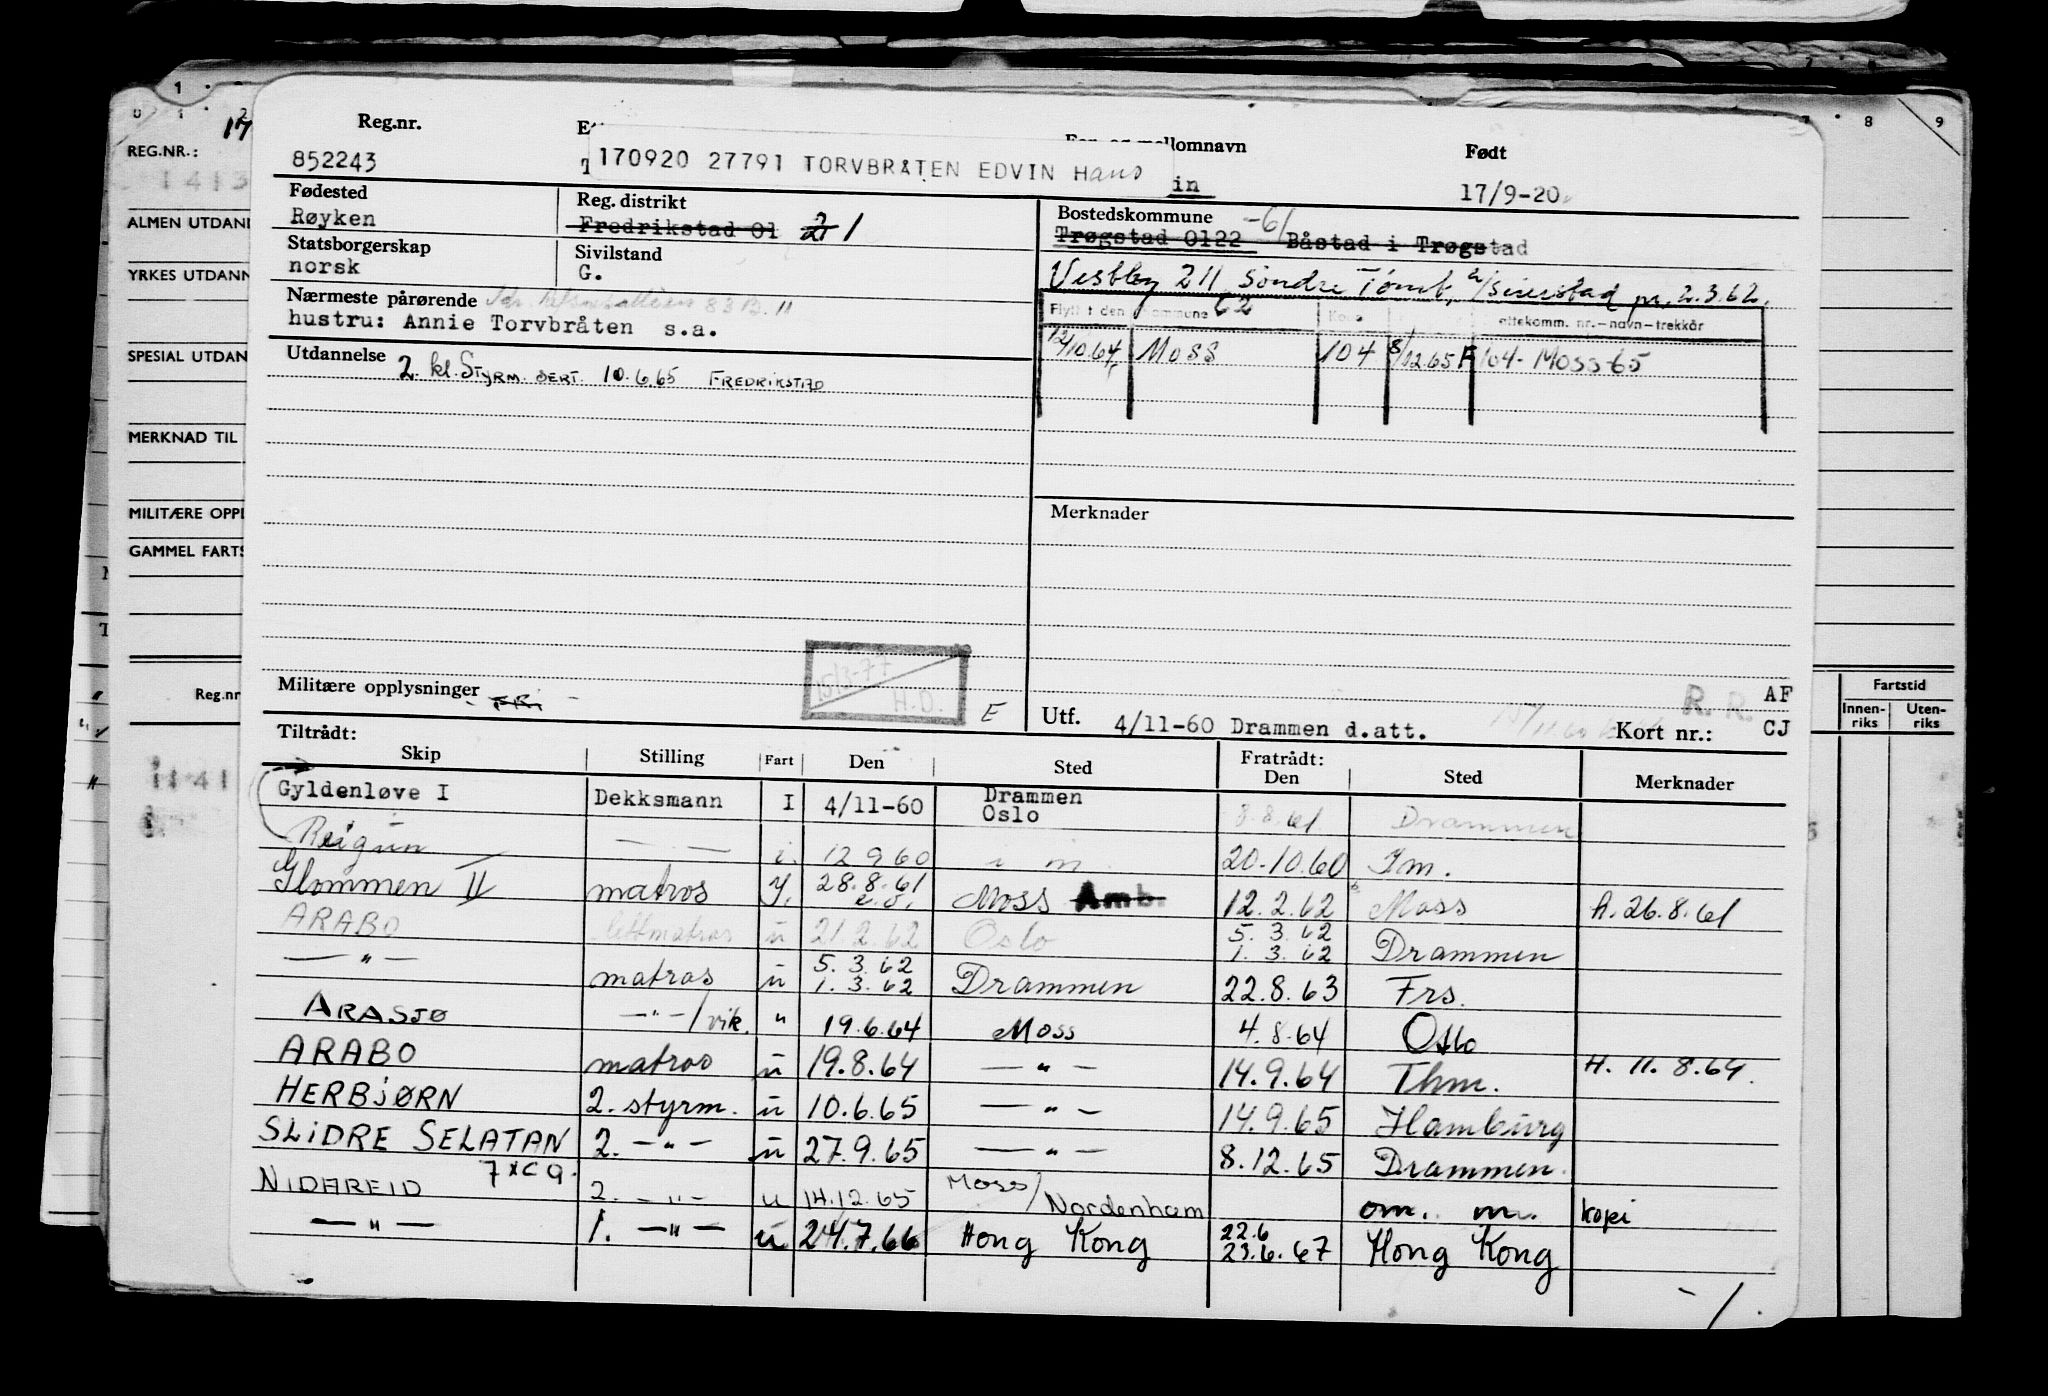 Reg.nr.
mellomnavn
Født
852243
170920 27791 TORVBRÅTEN EDVIN Hans
in
17/9-20
Fødested
Reg. distrikt
Bostedskommune -61
Røyken
Fredrikstad 01 21
Trøgstad 0122 Båstad i Trøgstad
Statsborgerskap
Sivilstand
norsk
G.
Vestby 211 Søndre Tomb, pr. 2.3.62.
Nærmeste pårørende
hustru: Annie Torvbråten s.a.
62
ettekomm. nr.-navn-trekkår
12/10.64 Moss 104 8/12.65 F 104 - Moss 65
Utdannelse
2. kl. Styrm. sert. 10.6.65 Fredrikstad
Merknader
Militære opplysninger
FR.
15/3-77
H.O.
E
R. R.
AF
Utf. 4/11-60 Drammen d.att.
Kort nr.: CJ
Tiltrådt:
Skip
Stilling
Fart
Den
Sted
Fratrådt:
Den
Sted
Merknader
Gyldenløve I Dekksmann I 4/11-60 Drammen Oslo 8.8.61 Drammen
Reigun — — i. 12 9 60 i m. 20.10.60 I m.
Glommen II matros I. 28.8.61 Moss Amb. 12.2.62 Moss A. 26.8.61
ARABO lettmatros u 21.2.62 Oslo 5.3.62 1.3.62 Drammen
— " — matros u 5.3.62 1.3.62 Drammen 22.8.63 Frs.
ARASJØ — " — / vik. " 19.6.64 Moss 4.8.64 Oslo
ARABO matros u 19.8.64 — " — 14.9.64 Thm. H. 11.8.64.
HERBJØRN 2. styrm. u 10.6.65 — " — 14.9.65 Hamburg
SLIDRE SELATAN 2. — " — u 27.9.65 — " — 8.12.65 Drammen.
7 x C 9.
NIDAREID 2. — " — u 14.12.65 Moss / Nordenham om. m. kopi
— " — 1. — " — u 24.7.66 Hong Kong 22.6 23.6.67 Hong Kong
- 1.
REG.NR.:
ALMEN UTDAN
YRKES UTDANN
SPESIAL UTDAN
MERKNAD TIL
MILITÆRE OPPL
GAMMEL FARTS
Reg.nr
Fartstid
Innen-riks
Uten-riks
8
9